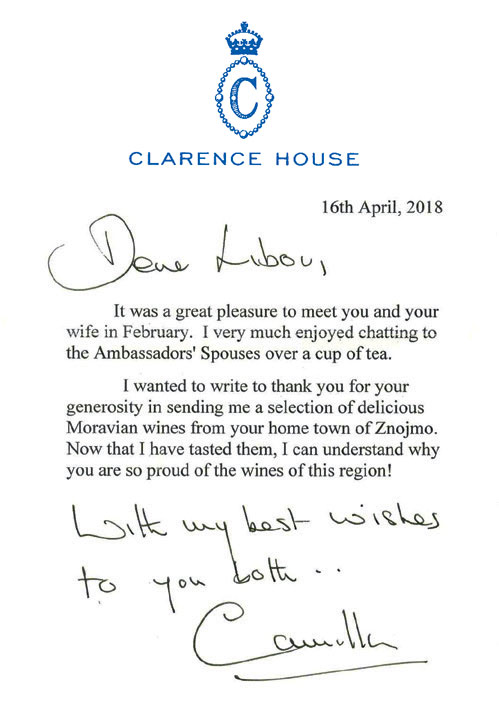 C
CLARENCE HOUSE
16th April, 2018
Dear Lubor,
It was a great pleasure to meet you and your
wife in February. I very much enjoyed chatting to
the Ambassadors' Spouses over a cup of tea.
I wanted to write to thank you for your
generosity in sending me a selection of delicious
Moravian wines from your home town of Znojmo.
Now that I have tasted them, I can understand why
you are so proud of the wines of this region!
With my best wishes
to you both ..
Camilla